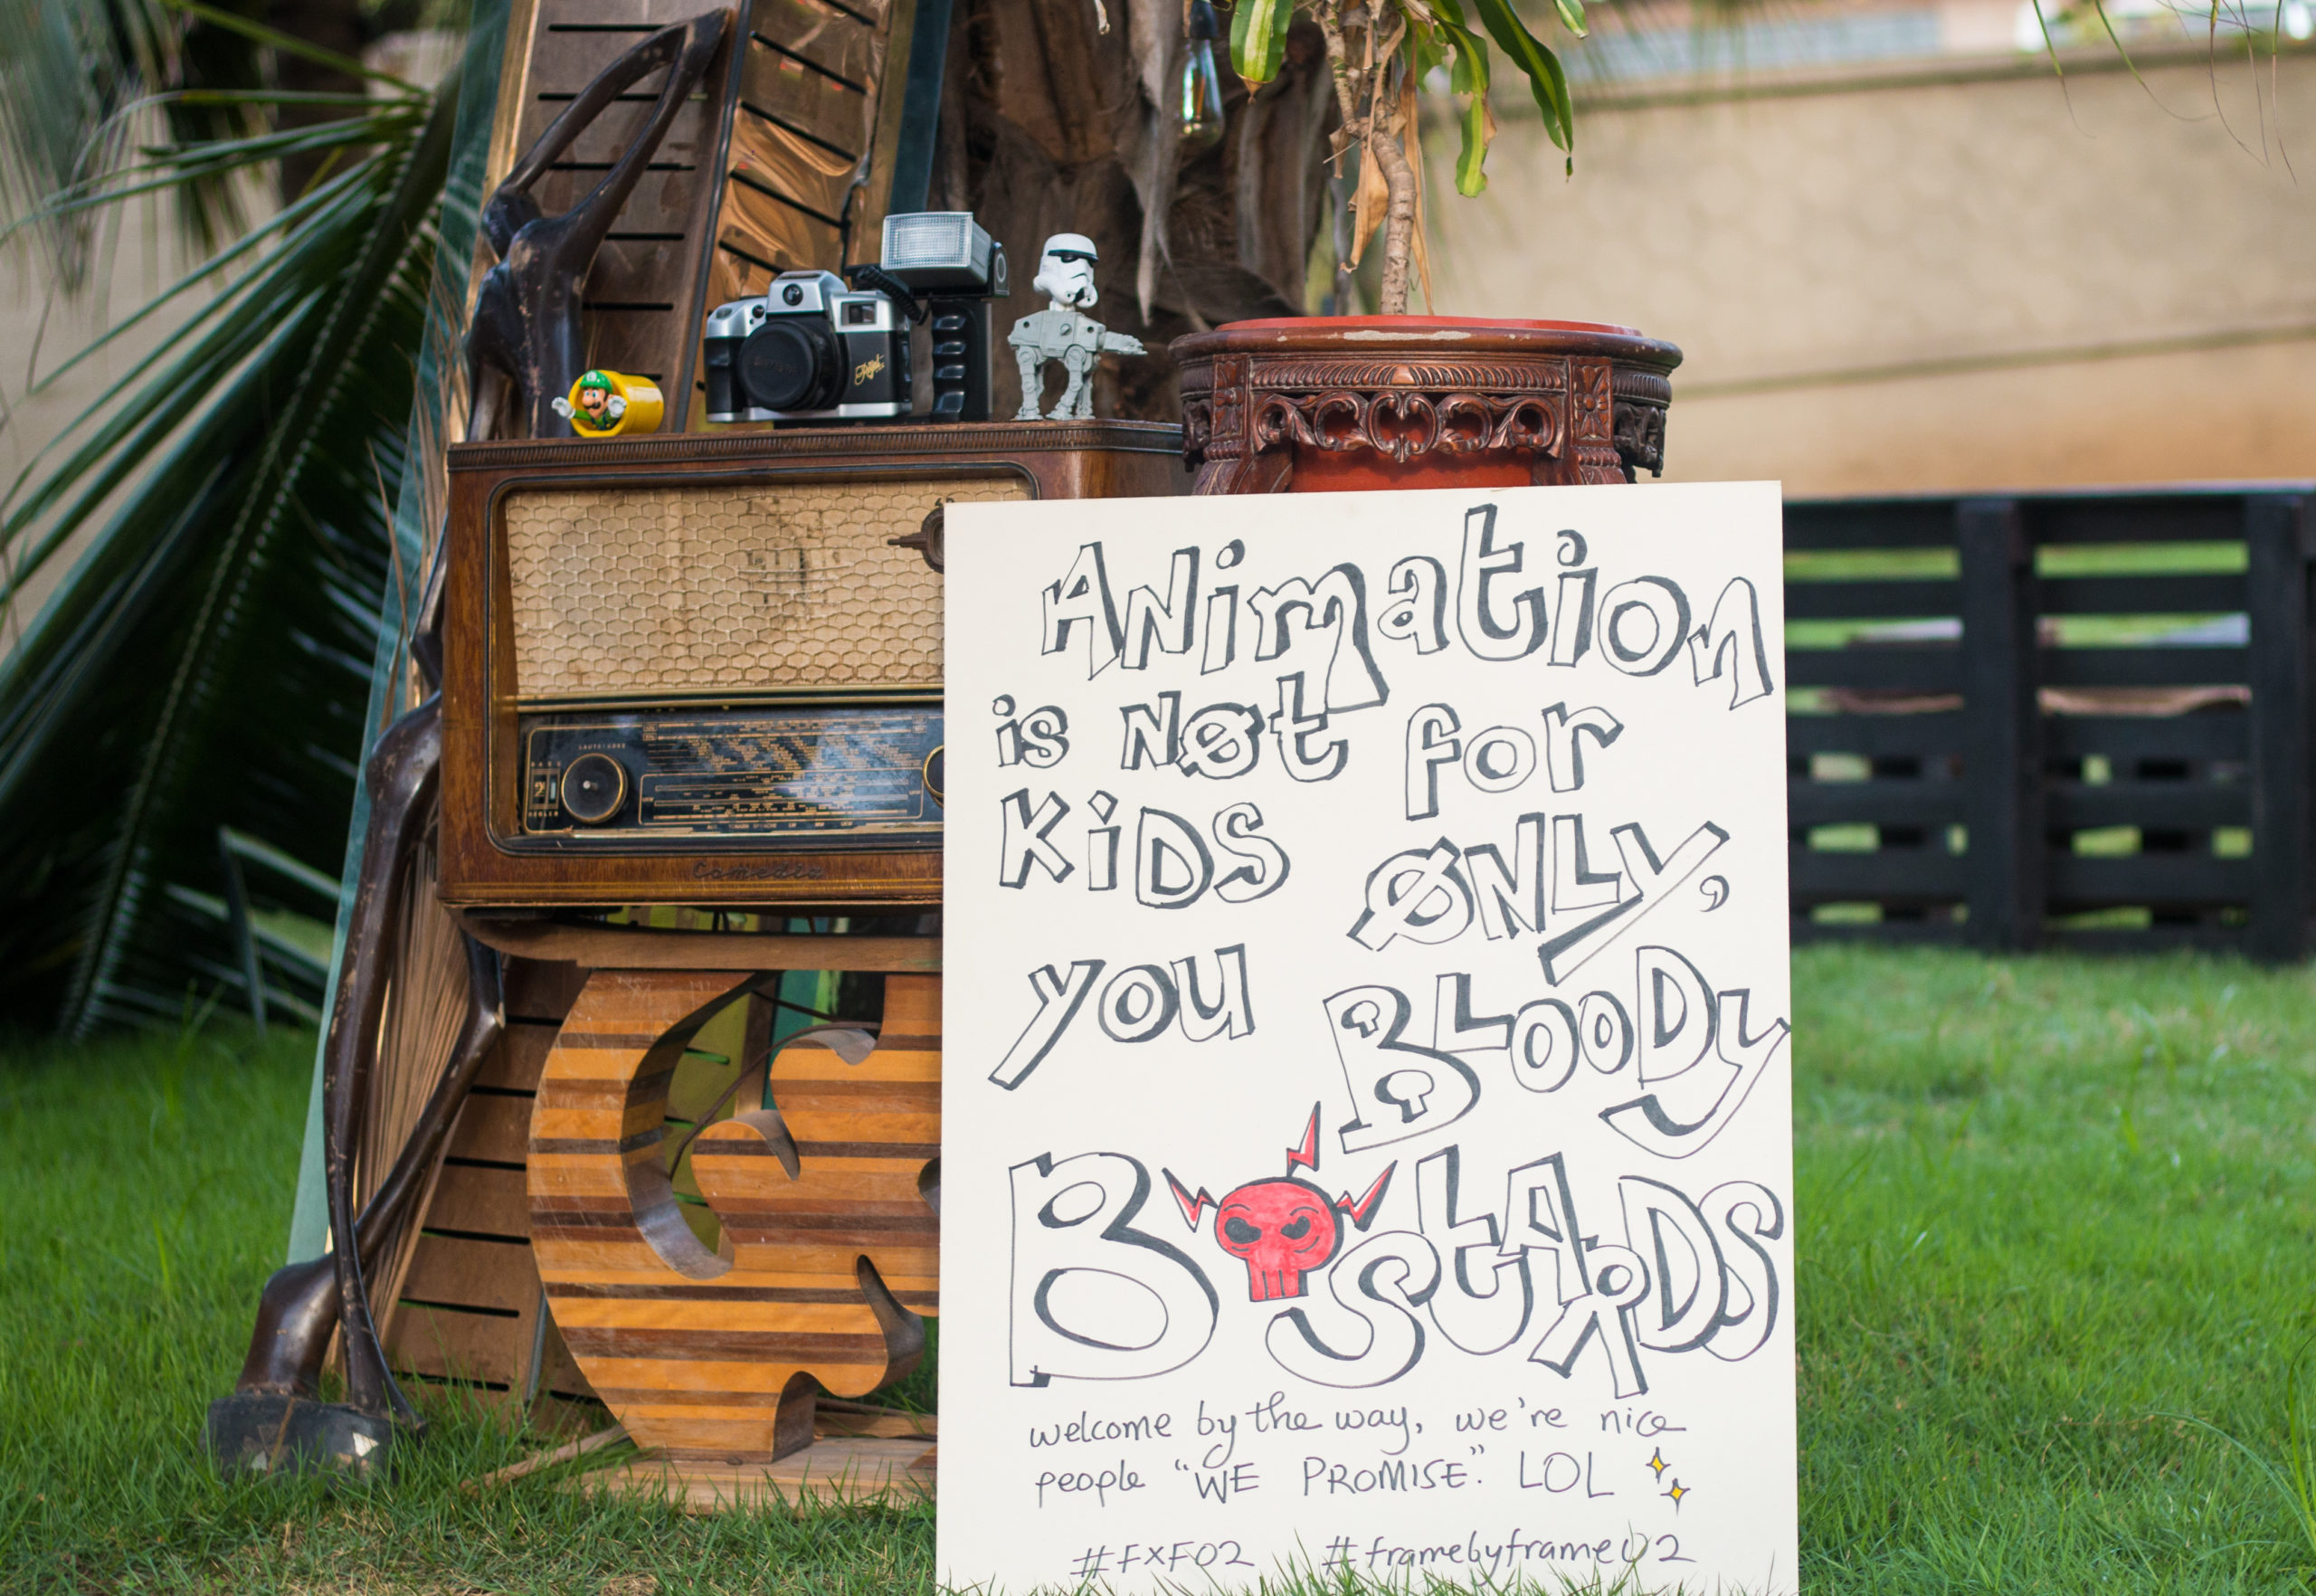 ANimation
is Not for
KiDS ONLY,
you BLOODy
BASTARDS
welcome by the way, we're nice
people "WE PROMISE". LOL
#FXF02 #framebyframe02
Comedia